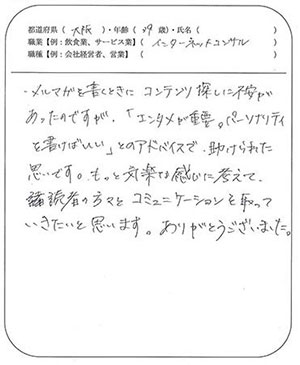 都道府県（ 大阪 ）・年齢（ 39 歳）・氏名（
職業【例：飲食業、サービス業】（ インターネットコンサル
職種【例：会社経営者、営業】（
・メルマガを書くときに コンテンツ探しに不安が
あったのですが、「エンタメが重要。パーソナリティ
を書けばいい」とのアドバイスで、助けられた
思いです。もっと気楽な感じに考えて、
購読者の方々とコミュニケーションを取って
いきたいと思います。ありがとうございました。